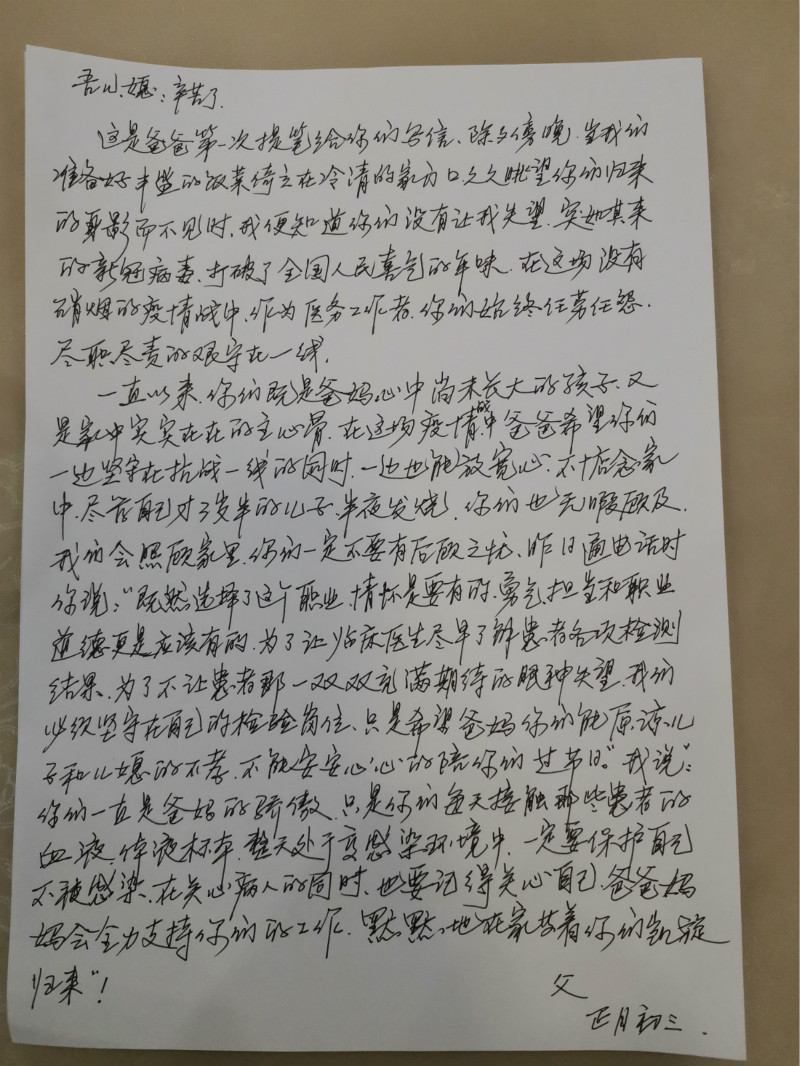 吾儿、媳：辛苦了.
这是爸爸第一次提笔给你们写信、除夕傍晚.当我们
准备好丰盛的饭菜倚立在冷清的家门口久久眺望你们归来
的身影而不见时.我便知道你们没有让我失望.突如其来
的新冠病毒.打破了全国人民喜气的年味.在这场没有
硝烟的疫情战中.作为医务工作者.你们始终任劳任怨.
尽职尽责的艰守在一线.
一直以来.你们既是爸妈心中尚未长大的孩子.又
是家中实实在在的主心骨.在这场疫情战中爸爸希望你们
一边坚守在抗战一线的同时.一边也能放宽心.不惦念家
中.尽管自己才3岁半的儿子.半夜发烧.你们也无暇顾及.
我们会照顾家里.你们一定不要有后顾之忧.昨日通电话时
你说："既然选择了这个职业.情怀是要有的.勇气、担当和职业
道德更是应该有的.为了让临床医生尽早了解患者各项检测
结果.为了不让患者那一双双充满期待的眼神失望.我们
必须坚守在自己的检验岗位.只是希望爸妈你们能原谅儿
子和儿媳的不孝.不能安安心心的陪你们过节日."我说":
你们一直是爸妈的骄傲.只是你们每天接触那些患者的
血液.体液标本.整天处于易感染环境中.一定要保护自己
不被感染.在关心病人的同时.也要记得关心自己.爸爸妈
妈会全力支持你们的工作.默默地在家等着你们凯旋
归来"！
父
正月初三.